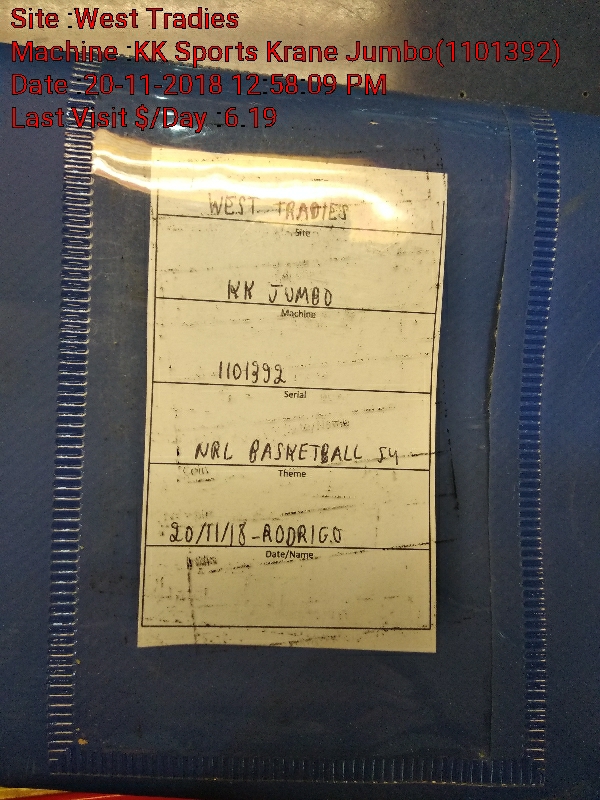 Site :West Tradies
Machine :KK Sports Krane Jumbo(1101392)
Date :20-11-2018 12:58:09 PM
Last Visit $/Day :6.19
WEST TRADIES
Site
KK JUMBO
Machine
1101392
Serial
NRL BASKETBALL S4
Theme
20/11/18-RODRIGO
Date/Name